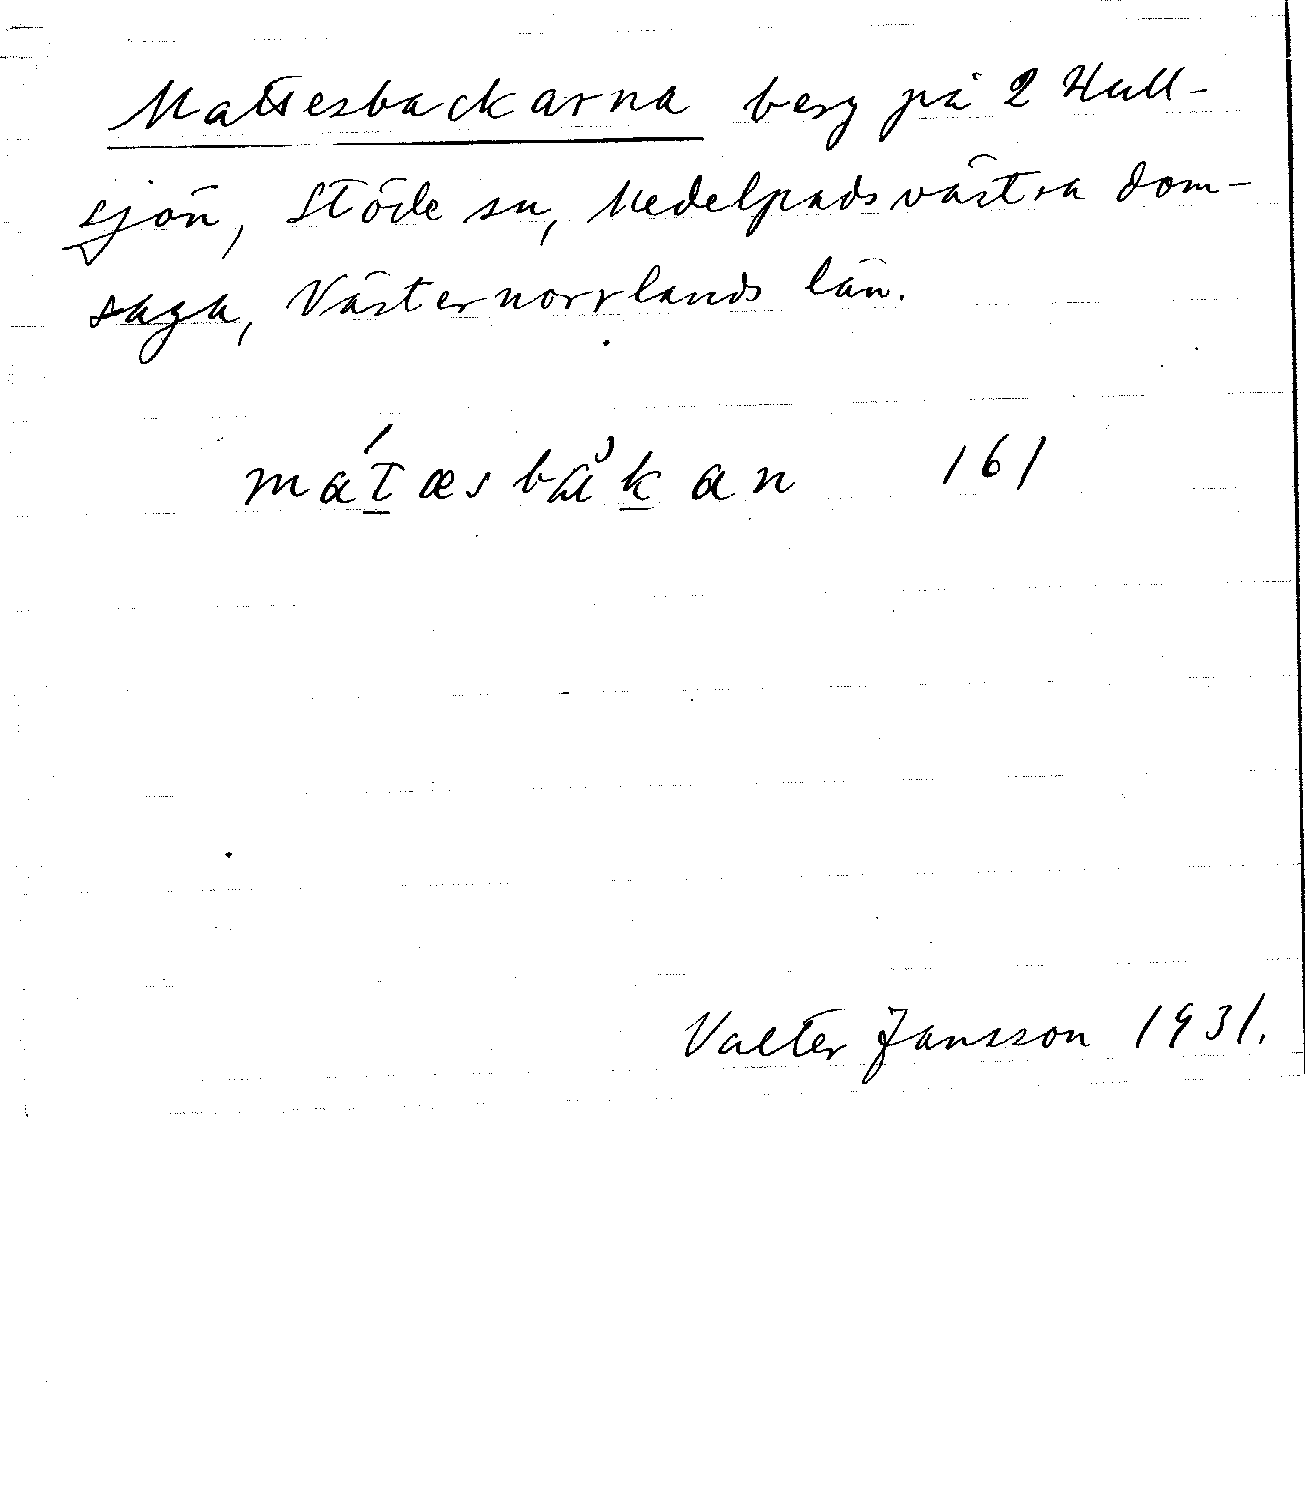 Mattesbackarna berg på 2 Hull-
sjön, Stöde sn, Medelpads västra dom-
saga, Västernorrlands län.
mat́æsbåkan 161
Valter Jansson 1931.